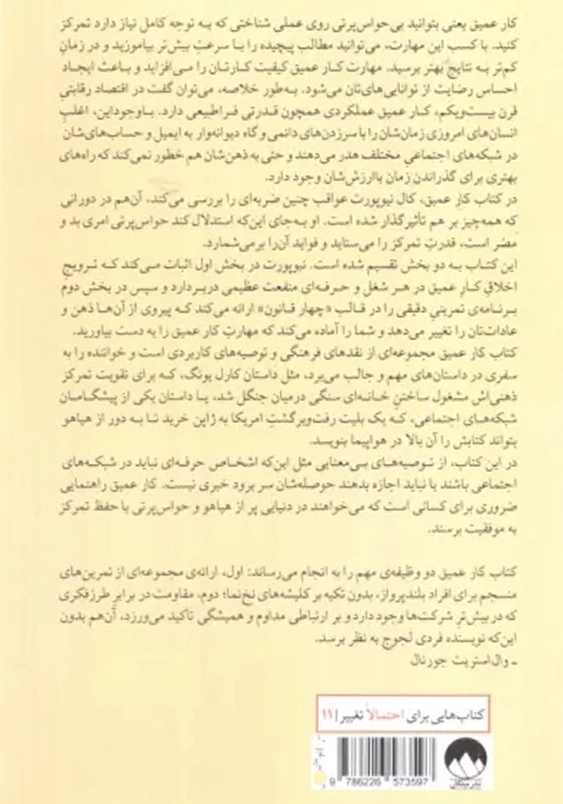 کار عمیق یعنی بتوانید بی‌حواس‌پرتی روی عملی شناختی که به توجه کامل نیاز دارد تمرکز
کنید. با کسب این مهارت، می‌توانید مطالب پیچیده را با سرعتِ بیش‌تر بیاموزید و در زمانِ
کم‌تر به نتایج بهتر برسید. مهارت کار عمیق کیفیت کارتان را می‌افزاید و باعث ایجاد
احساس رضایت از توانایی‌های‌تان می‌شود. به‌طور خلاصه، می‌توان گفت در اقتصاد رقابتیِ
قرن بیست‌ویکم، کار عمیق عملکردی همچون قدرتی فراطبیعی دارد. باوجوداین، اغلبِ
انسان‌های امروزی زمان‌شان را با سرزدن‌های دائمی و گاه دیوانه‌وار به ایمیل و حساب‌های‌شان
در شبکه‌های اجتماعیِ مختلف هدر می‌دهند و حتی به ذهن‌شان هم خطور نمی‌کند که راه‌های
بهتری برای گذراندن زمان باارزش‌شان وجود دارد.
در کتاب کار عمیق، کال نیوپورت عواقب چنین ضربه‌ای را بررسی می‌کند، آن‌هم در دورانی
که همه‌چیز بر هم تأثیرگذار شده است. او به‌جای این‌که استدلال کند حواس‌پرتی امری بد و
مضر است، قدرتِ تمرکز را می‌ستاید و فواید آن‌را برمی‌شمارد.
این کتاب به دو بخش تقسیم شده است. نیوپورت در بخش اول اثبات می‌کند که ترویجِ
اخلاقِ کارِ عمیق در هر شغل و حرفه‌ای منفعت عظیمی دربردارد و سپس در بخش دوم
برنامه‌ی تمرینیِ دقیقی را در قالب «چهار قانون» ارائه می‌کند که پیروی از آن‌ها ذهن و
عادات‌تان را تغییر می‌دهد و شما را آماده می‌کند که مهارتِ کار عمیق را به دست بیاورید.
کتاب کار عمیق مجموعه‌ای از نقدهای فرهنگی و توصیه‌های کاربردی است و خواننده را به
سفری در داستان‌های مهم و جالب می‌برد، مثل داستان کارل یونگ، که برای تقویت تمرکز
ذهنی‌اش مشغول ساختنِ خانه‌ای سنگی درمیان جنگل شد، یا داستان یکی از پیشگامان
شبکه‌های اجتماعی، که یک بلیت رفت‌وبرگشتِ امریکا به ژاپن خرید تا به دور از هیاهو
بتواند کتابش را آن بالا در هواپیما بنویسد.
در این کتاب، از توصیه‌های بی‌معنایی مثل این‌که اشخاص حرفه‌ای نباید در شبکه‌های
اجتماعی باشند یا نباید اجازه بدهند حوصله‌شان سر برود خبری نیست. کار عمیق راهنمایی
ضروری برای کسانی است که می‌خواهند در دنیایی پر از هیاهو و حواس‌پرتی با حفظ تمرکز
به موفقیت برسند.
کتاب کار عمیق دو وظیفه‌ی مهم را به انجام می‌رساند: اول، ارائه‌ی مجموعه‌ای از تمرین‌های
منسجم برای افراد بلندپرواز، بدون تکیه بر کلیشه‌های نخ‌نما؛ دوم، مقاومت در برابرِ طرزفکری
که در بیش‌ترِ شرکت‌ها وجود دارد و بر ارتباطی مداوم و همیشگی تأکید می‌ورزد، آن‌هم بدون
این‌که نویسنده فردی لجوج به نظر برسد.
ـ وال‌استریت جورنال
کتاب‌هایی برای احتمالاً تغییر | ۱۱
9 786226 573597